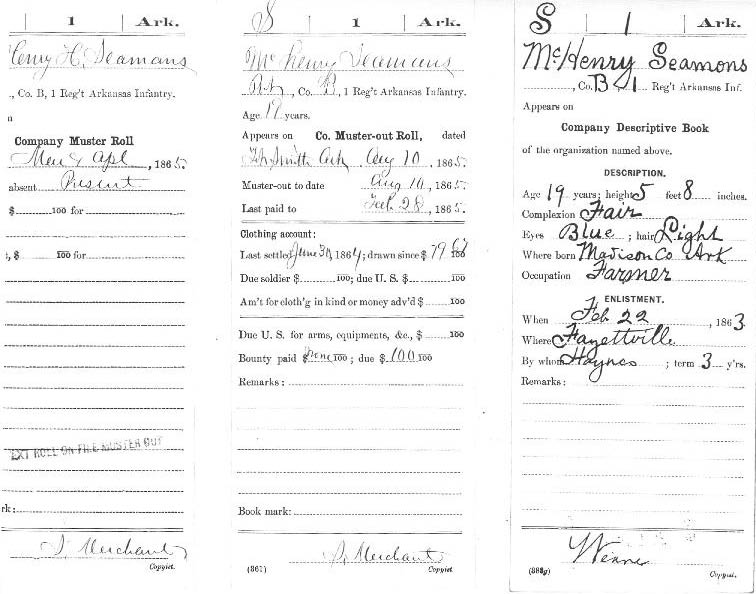 1 | Ark.
Henry H. Seamans
., Co. B, 1 Reg't Arkansas Infantry.
n
Company Muster Roll
Mch & Apl, 1865.
absent Present
$ 100 for
, $ 100 for
EXT ROLL ON FILE MUSTER OUT
rk:
S. Merchant
Copyist.
S | 1 | Ark.
McHenry Seamans
Pvt, Co. B, 1 Reg't Arkansas Infantry.
Age 19 years.
Appears on Co. Muster-out Roll, dated
Ft. Smith Ark Aug 10, 1865.
Muster-out to date Aug 10, 1865.
Last paid to Feb 28, 1865.
Clothing account:
Last settled June 30, 1864; drawn since $ 79 100
Due soldier $ 100; due U. S. $ 100
Am't for cloth'g in kind or money adv'd $ 100
Due U. S. for arms, equipments, &c., $ 100
Bounty paid $ none 100; due $ 100 100
Remarks:
Book mark:
S. Merchant
(361) Copyist.
S | 1 | Ark.
McHenry Seamons
, Co. B, 1 Reg't Arkansas Inf.
Appears on
Company Descriptive Book
of the organization named above.
DESCRIPTION.
Age 19 years; height 5 feet 8 inches.
Complexion Fair
Eyes Blue; hair Light
Where born Madison Co Ark
Occupation Farmer
ENLISTMENT.
When Feb 22, 1863
Where Fayettville
By whom Haynes; term 3 y'rs.
Remarks:
(383g) Copyist.